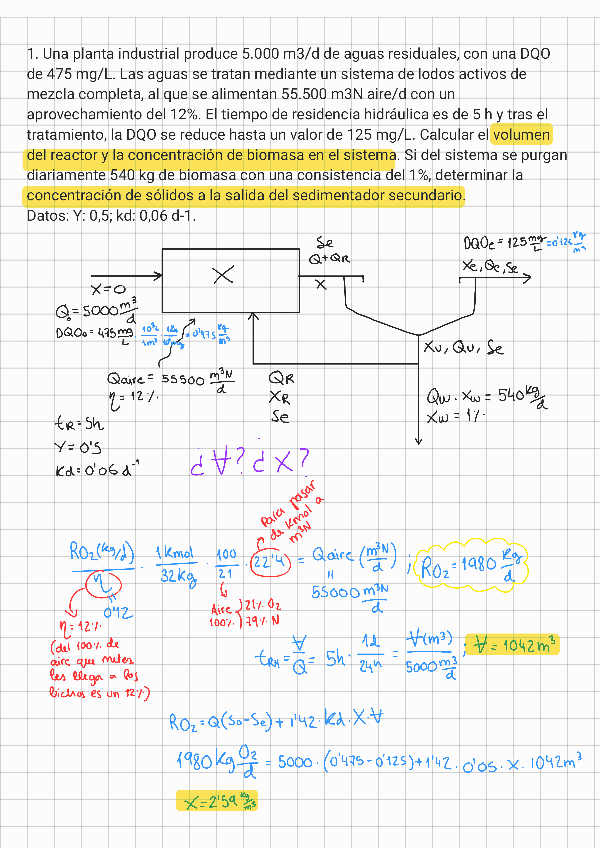 1. Una planta industrial produce 5.000 m3/d de aguas residuales, con una DQO
de 475 mg/L. Las aguas se tratan mediante un sistema de lodos activos de
mezcla completa, al que se alimentan 55.500 m3N aire/d con un
aprovechamiento del 12%. El tiempo de residencia hidráulica es de 5 h y tras el
tratamiento, la DQO se reduce hasta un valor de 125 mg/L. Calcular el volumen
del reactor y la concentración de biomasa en el sistema. Si del sistema se purgan
diariamente 540 kg de biomasa con una consistencia del 1%, determinar la
concentración de sólidos a la salida del sedimentador secundario.
Datos: Y: 0,5; kd: 0,06 d-1.
Se
Q+QR
X
X
DQOe = 125 mg/L = 0'125 kg/m³
Xe, Qe, Se
X=0
Q₀ = 5000 m³/d
DQO₀ = 475 mg/L · 10³L/1m³ · 1kg/10⁶mg = 0'475 kg/m³
Xu, Qu, Se
Qaire = 55500 m³N/d
η = 12%
QR
XR
Se
Qw · Xw = 540 kg/d
Xw = 1%
tR = 5h
Y = 0'5
Kd = 0'06 d⁻¹
¿V? ¿X?
Para pasar
de kmol a
m³N
RO₂(kg/d)/η · 1kmol/32kg · 100/21 · 22'4 = Qaire (m³N/d) ; RO₂ = 1980 kg/d
55000 m³N/d
0'12
Aire 100% { 21% O₂
79% N
η = 12%
(del 100% de
aire que metes
les llega a los
bichos es un 12%)
tRH = V/Q = 5h · 1d/24h = V(m³)/5000 m³/d ; V = 1042 m³
RO₂ = Q(S₀-Se) + 1'42 · kd · X · V
1980 kg O₂/d = 5000 · (0'475 - 0'125) + 1'42 · 0'05 · X · 1042 m³
X = 2'59 kg/m³